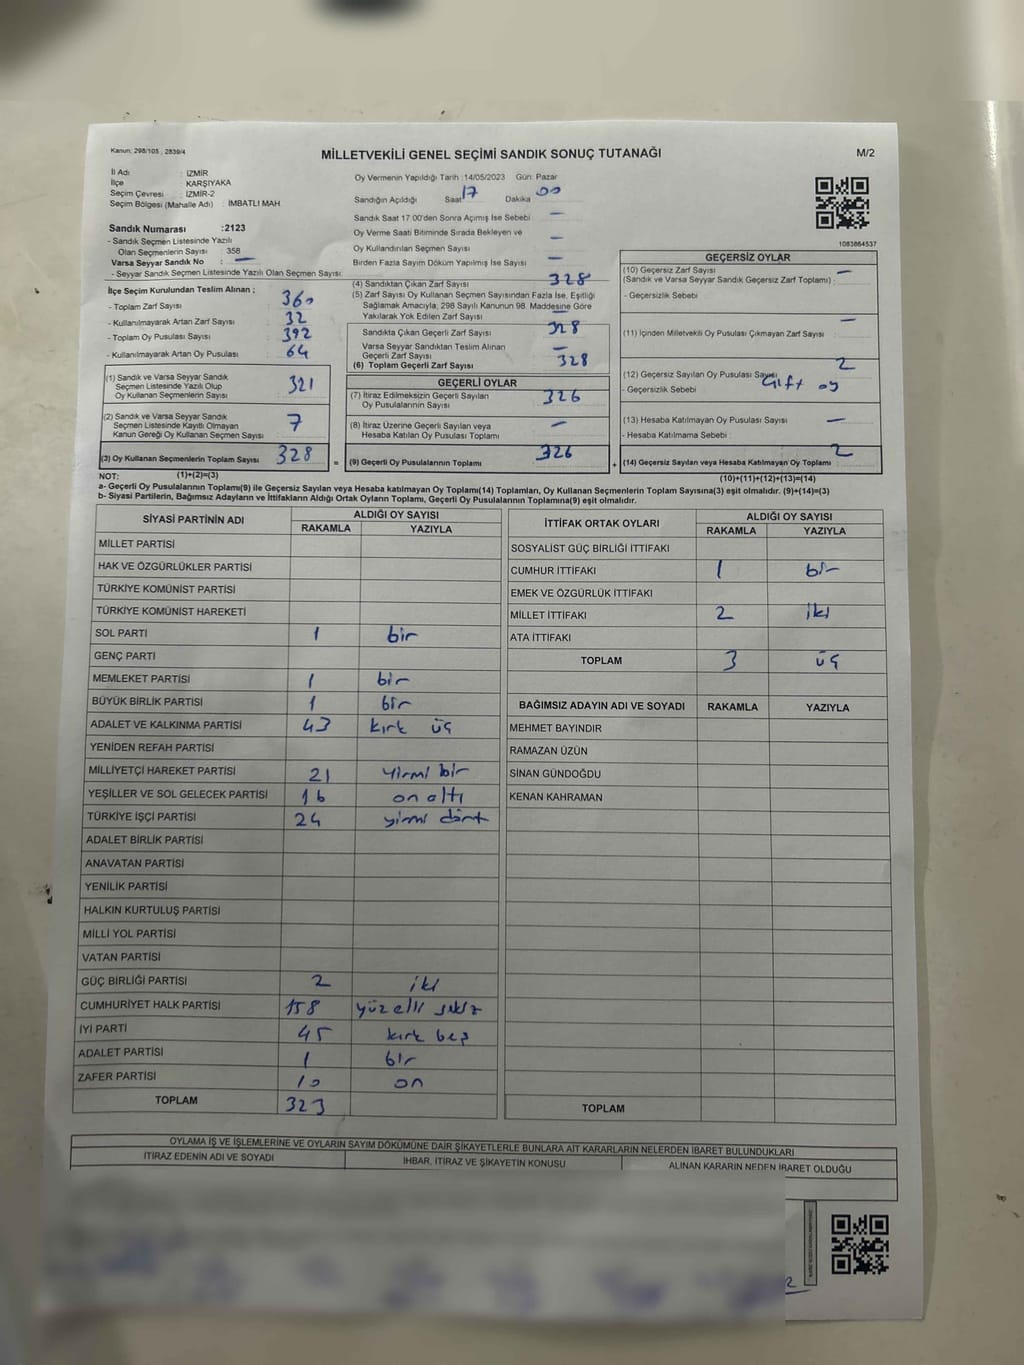 Kanun: 298/105 , 2839/4
MİLLETVEKİLİ GENEL SEÇİMİ SANDIK SONUÇ TUTANAĞI
M/2
İl Adı : İZMİR
İlçe : KARŞIYAKA
Seçim Çevresi : İZMİR-2
Seçim Bölgesi (Mahalle Adı) : İMBATLI MAH
Sandık Numarası :2123
- Sandık Seçmen Listesinde Yazılı
Olan Seçmenlerin Sayısı : 358
Varsa Seyyar Sandık No : —
- Seyyar Sandık Seçmen Listesinde Yazılı Olan Seçmen Sayısı:
Oy Vermenin Yapıldığı Tarih :14/05/2023 Gün: Pazar
Sandığın Açıldığı Saat 17 Dakika 00
Sandık Saat 17:00'den Sonra Açımış İse Sebebi —
Oy Verme Saati Bitiminde Sırada Bekleyen ve
Oy Kullandırılan Seçmen Sayısı —
Birden Fazla Sayım Döküm Yapılmış İse Sayısı —
1083864537
İlçe Seçim Kurulundan Teslim Alınan ;
- Toplam Zarf Sayısı : 360
- Kullanılmayarak Artan Zarf Sayısı : 32
- Toplam Oy Pusulası Sayısı : 392
- Kullanılmayarak Artan Oy Pusulası : 64
(1) Sandık ve Varsa Seyyar Sandık
Seçmen Listesinde Yazılı Olup
Oy Kullanan Seçmenlerin Sayısı : 321
(2) Sandık ve Varsa Seyyar Sandık
Seçmen Listesinde Kayıtlı Olmayan
Kanun Gereği Oy Kullanan Seçmen Sayısı : 7
(3) Oy Kullanan Seçmenlerin Toplam Sayısı : 328
(1)+(2)=(3)
(4) Sandıktan Çıkan Zarf Sayısı 328
(5) Zarf Sayısı Oy Kullanan Seçmen Sayısından Fazla İse, Eşitliği
Sağlamak Amacıyla, 298 Sayılı Kanunun 98. Maddesine Göre
Yakılarak Yok Edilen Zarf Sayısı : —
Sandıkta Çıkan Geçerli Zarf Sayısı 328
Varsa Seyyar Sandıktan Teslim Alınan
Geçerli Zarf Sayısı —
(6) Toplam Geçerli Zarf Sayısı 328
GEÇERLİ OYLAR
(7) İtiraz Edilmeksizin Geçerli Sayılan
Oy Pusulalarının Sayısı 326
(8) İtiraz Üzerine Geçerli Sayılan veya
Hesaba Katılan Oy Pusulası Toplamı —
= (9) Geçerli Oy Pusulalarının Toplamı 326
GEÇERSİZ OYLAR
(10) Geçersiz Zarf Sayısı —
(Sandık ve Varsa Seyyar Sandık Geçersiz Zarf Toplamı) :
- Geçersizlik Sebebi :
(11) İçinden Milletvekili Oy Pusulası Çıkmayan Zarf Sayısı : —
(12) Geçersiz Sayılan Oy Pusulası Sayısı 2
- Geçersizlik Sebebi : Gift oy
(13) Hesaba Katılmayan Oy Pusulası Sayısı : —
- Hesaba Katılmama Sebebi :
+ (14) Geçersiz Sayılan veya Hesaba Katılmayan Oy Toplamı 2
(10)+(11)+(12)+(13)=(14)
NOT:
a- Geçerli Oy Pusulalarının Toplamı(9) ile Geçersiz Sayılan veya Hesaba katılmayan Oy Toplamı(14) Toplamları, Oy Kullanan Seçmenlerin Toplam Sayısına(3) eşit olmalıdır. (9)+(14)=(3)
b- Siyasi Partilerin, Bağımsız Adayların ve İttifakların Aldığı Ortak Oyların Toplamı, Geçerli Oy Pusulalarının Toplamına(9) eşit olmalıdır.
SİYASİ PARTİNİN ADI ALDIĞI OY SAYISI
RAKAMLA YAZIYLA
MİLLET PARTİSİ
HAK VE ÖZGÜRLÜKLER PARTİSİ
TÜRKİYE KOMÜNİST PARTİSİ
TÜRKİYE KOMÜNİST HAREKETİ
SOL PARTİ 1 bir
GENÇ PARTİ
MEMLEKET PARTİSİ 1 bir
BÜYÜK BİRLİK PARTİSİ 1 bir
ADALET VE KALKINMA PARTİSİ 43 kırk üç
YENİDEN REFAH PARTİSİ
MİLLİYETÇİ HAREKET PARTİSİ 21 yirmi bir
YEŞİLLER VE SOL GELECEK PARTİSİ 16 on altı
TÜRKİYE İŞÇİ PARTİSİ 24 yirmi dört
ADALET BİRLİK PARTİSİ
ANAVATAN PARTİSİ
YENİLİK PARTİSİ
HALKIN KURTULUŞ PARTİSİ
MİLLİ YOL PARTİSİ
VATAN PARTİSİ
GÜÇ BİRLİĞİ PARTİSİ 2 iki
CUMHURİYET HALK PARTİSİ 158 yüzelli sekiz
İYİ PARTİ 45 kırk beş
ADALET PARTİSİ 1 bir
ZAFER PARTİSİ 10 on
TOPLAM 323
İTTİFAK ORTAK OYLARI ALDIĞI OY SAYISI
RAKAMLA YAZIYLA
SOSYALİST GÜÇ BİRLİĞİ İTTİFAKI
CUMHUR İTTİFAKI 1 bir
EMEK VE ÖZGÜRLÜK İTTİFAKI
MİLLET İTTİFAKI 2 iki
ATA İTTİFAKI
TOPLAM 3 üç
BAĞIMSIZ ADAYIN ADI VE SOYADI RAKAMLA YAZIYLA
MEHMET BAYINDIR
RAMAZAN ÜZÜN
SİNAN GÜNDOĞDU
KENAN KAHRAMAN
TOPLAM
OYLAMA İŞ VE İŞLEMLERİNE VE OYLARIN SAYIM DÖKÜMÜNE DAİR ŞİKAYETLERLE BUNLARA AİT KARARLARIN NELERDEN İBARET BULUNDUKLARI
İTİRAZ EDENİN ADI VE SOYADI İHBAR, İTİRAZ VE ŞİKAYETİN KONUSU ALINAN KARARIN NEDEN İBARET OLDUĞU
2